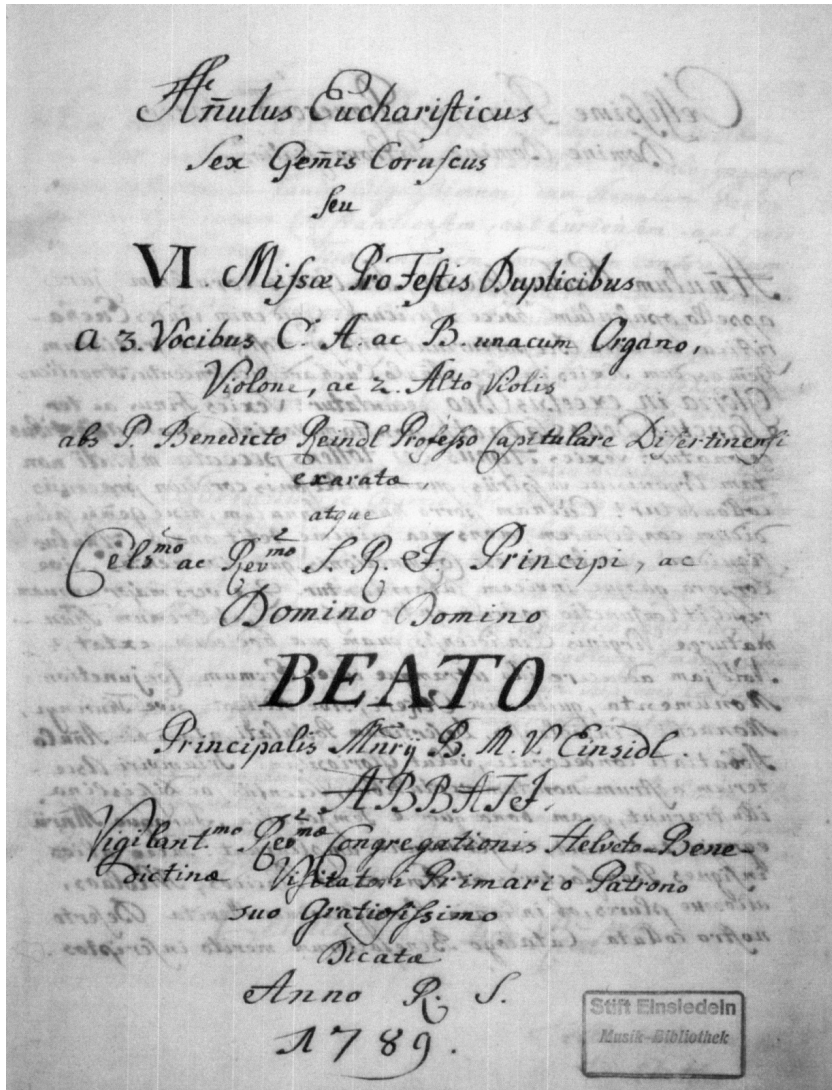 Añulus Euchariſticus
Sex Gem̃is Coruſcus
ſeu
VI Miſsæ Pro Feſtis Duplicibus
a 3. Vocibus C. A. ac B. unacum Organo,
Violone, ac 2. Alto Violis
abs P. Benedicto Reindl Profeſso Capitulare Diſertinenſi
exaratæ,
atque
Celsmo ac Rev2mo S. R. J. Principi, ac
Domino Domino
BEATO
Principalis Mnrÿ B. M. V. Einsidl.
ABBATJ,
Vigilant.mo Rev2mæ Congregationis Helveto-Bene-
dictinæ Viſitatori Primario Patrono
suo Gratioſiſsimo
Dicatæ
Anno R. S.
1789.
Stift Einsiedeln
Musik-Bibliothek